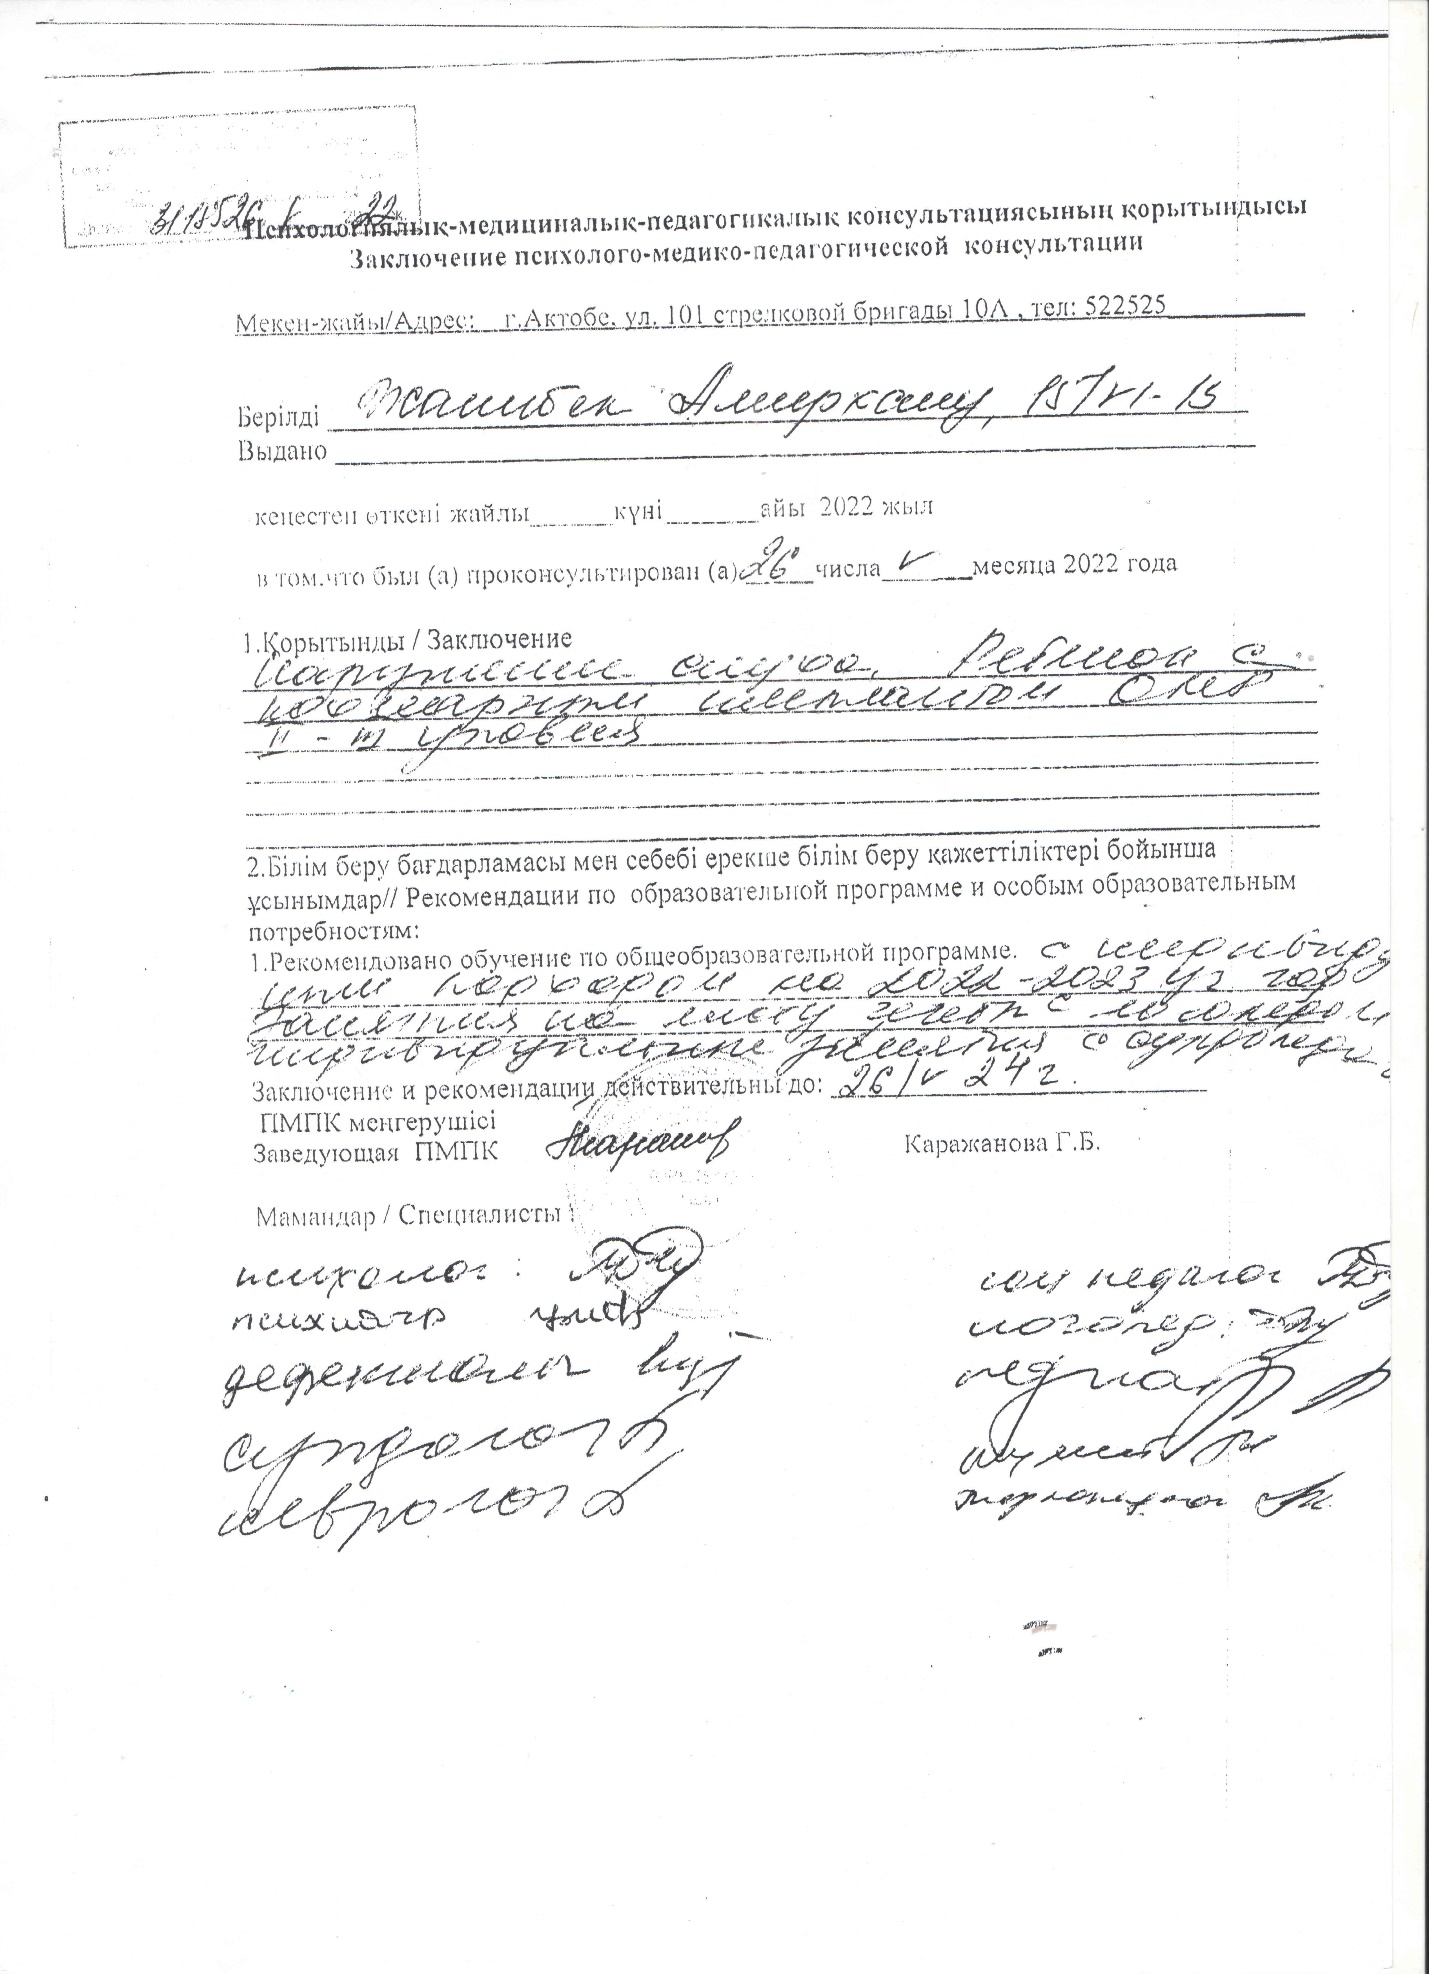 Психологиялық-медициналық-педагогикалық консультациясының қорытындысы
Заключение психолого-медико-педагогической консультации
Мекен-жайы/Адрес: г.Актобе, ул. 101 стрелковой бригады 10А , тел: 522525
Берілді Жанибек Амирхану, 15/VI-15
Выдано
кеңестен өткені жайлы______күні_______айы 2022 жыл
в том.что был (а) проконсультирован (а) 26 числа V месяца 2022 года
1.Қорытынды / Заключение
Нарушение слуха. Ребенок с
кохлеарным имплантом ОНР
II - III уровня
2.Білім беру бағдарламасы мен себебі ерекше білім беру қажеттіліктері бойынша
ұсынымдар// Рекомендации по образовательной программе и особым образовательным
потребностям:
1.Рекомендовано обучение по общеобразовательной программе. с индивиду
подходом на 2022-2023 уч год
Занятия по с логопедом
индивидуальные занятия с сурдопеда
Заключение и рекомендации действительны до: 26/V 24 г.
ПМПК меңгерушісі
Заведующая ПМПК Каражанова Г.Б.
Мамандар / Специалисты :
психолог : соц педагог
психиатр логопед:
дефектолог педиатр
сурдолог
невролог